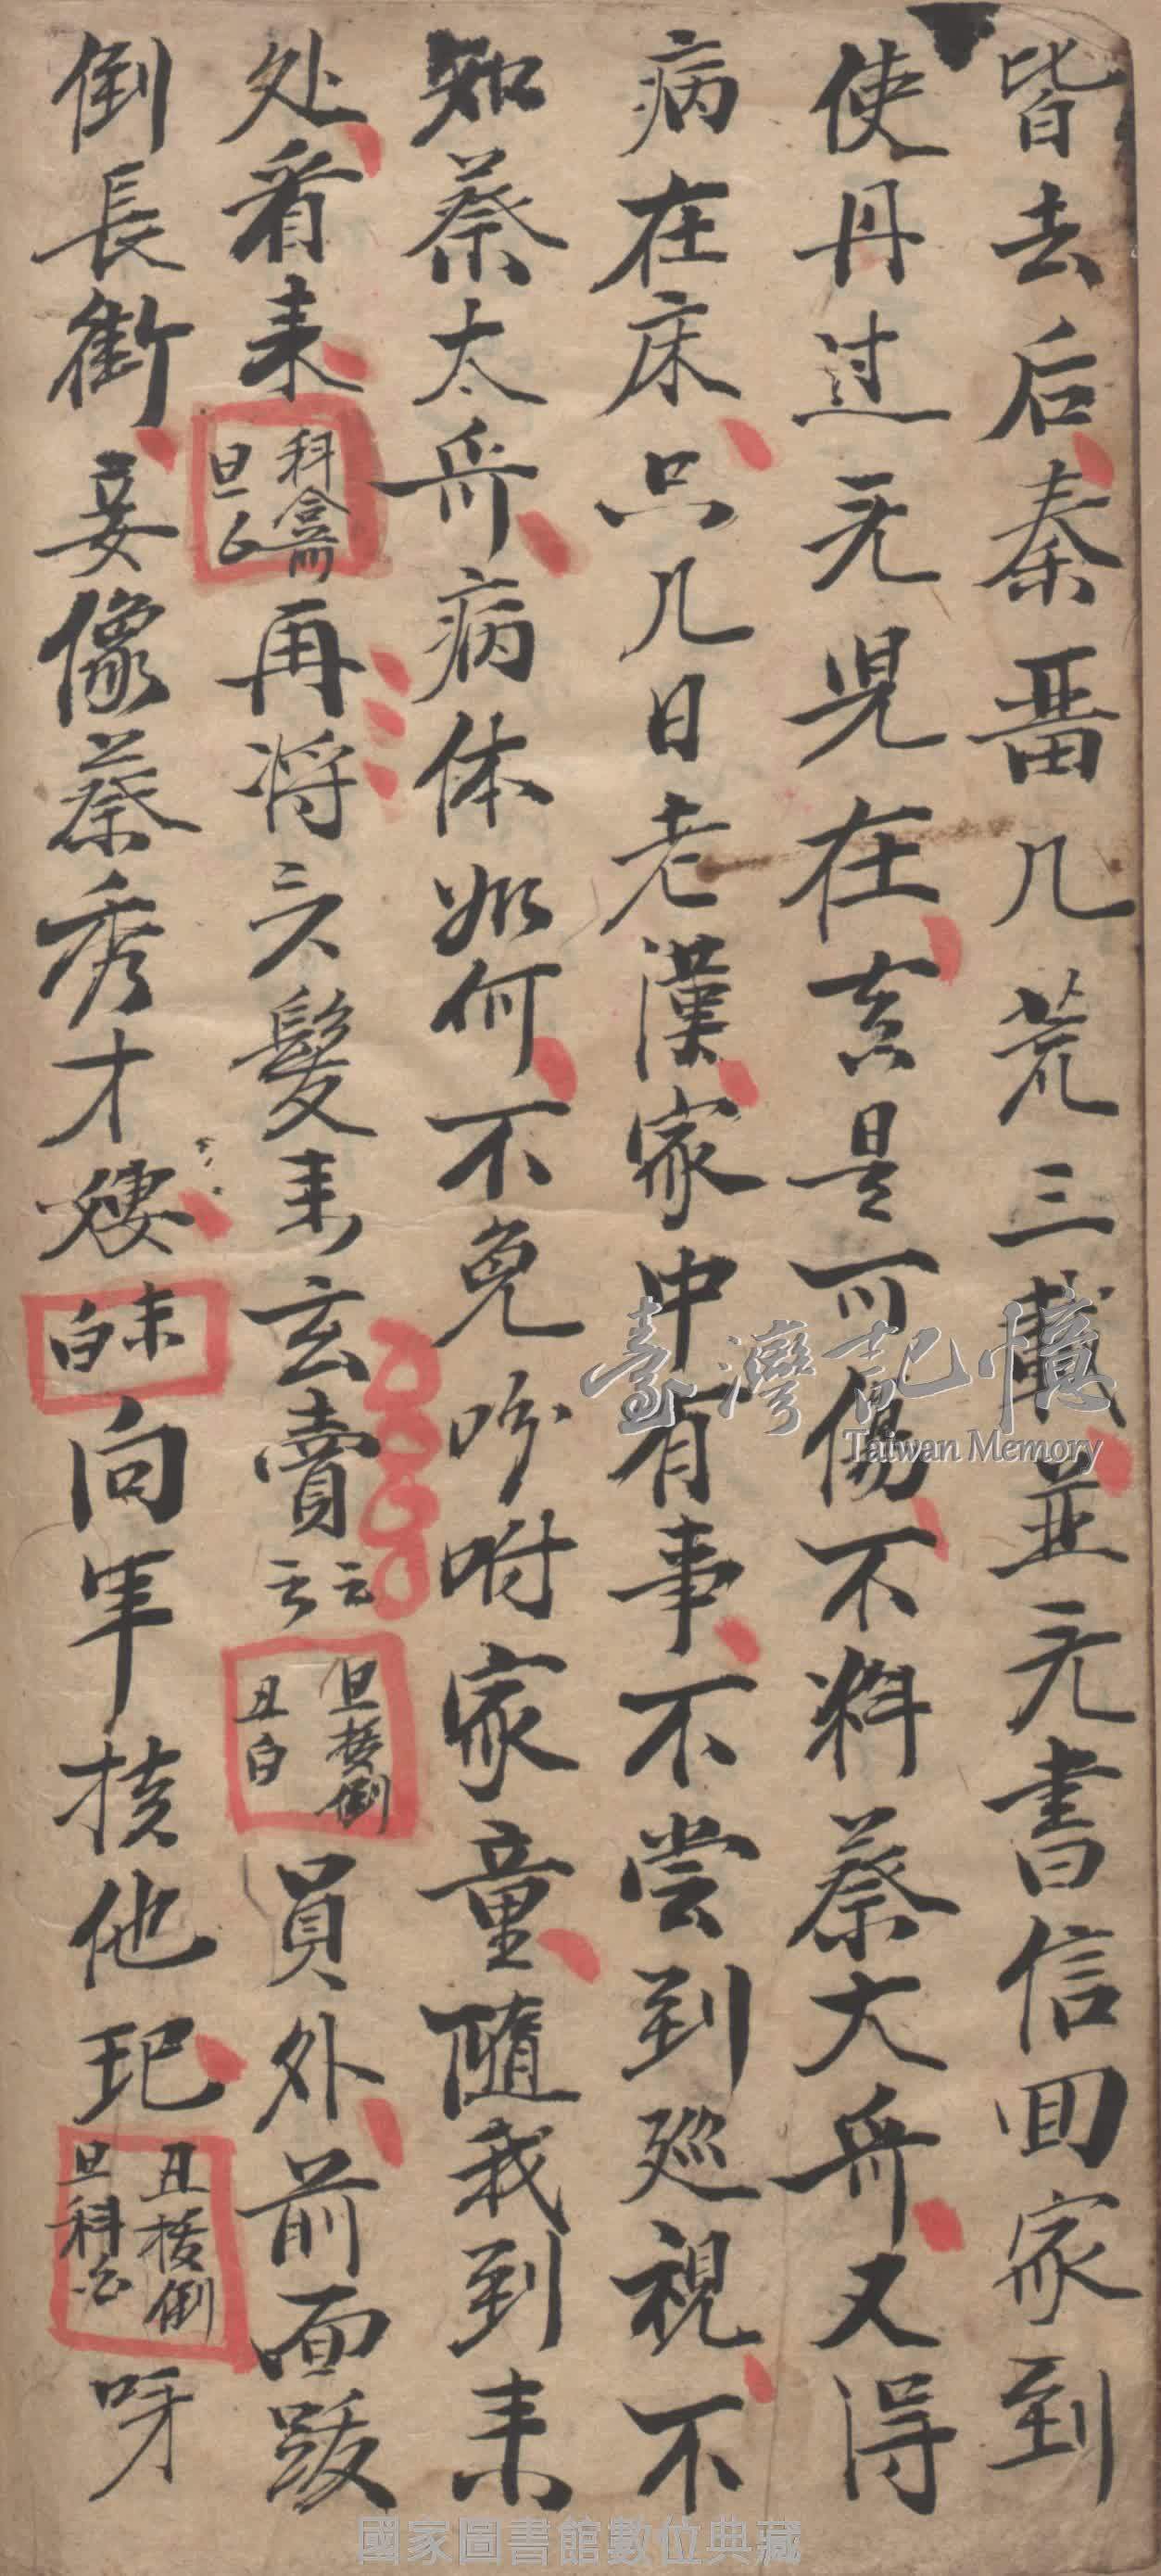 皆去后秦啚几荒三載並无書信回家到
使丹过无児在在吉是可傷不料蔡大爷又得
病在床只几日老漢家中有事不尝到廵視不
知蔡太爷病体如何不免吩咐家童隨我到来
处看来
科介
旦上
再将头髮来玄賣
云云
旦拔倒
丑白
員外前面跋
倒長街妾像蔡秀才㛐
末白
向年扶他玘
丑拔倒
旦科白
呀
臺灣記憶
Taiwan Memory
國家圖書館數位典藏